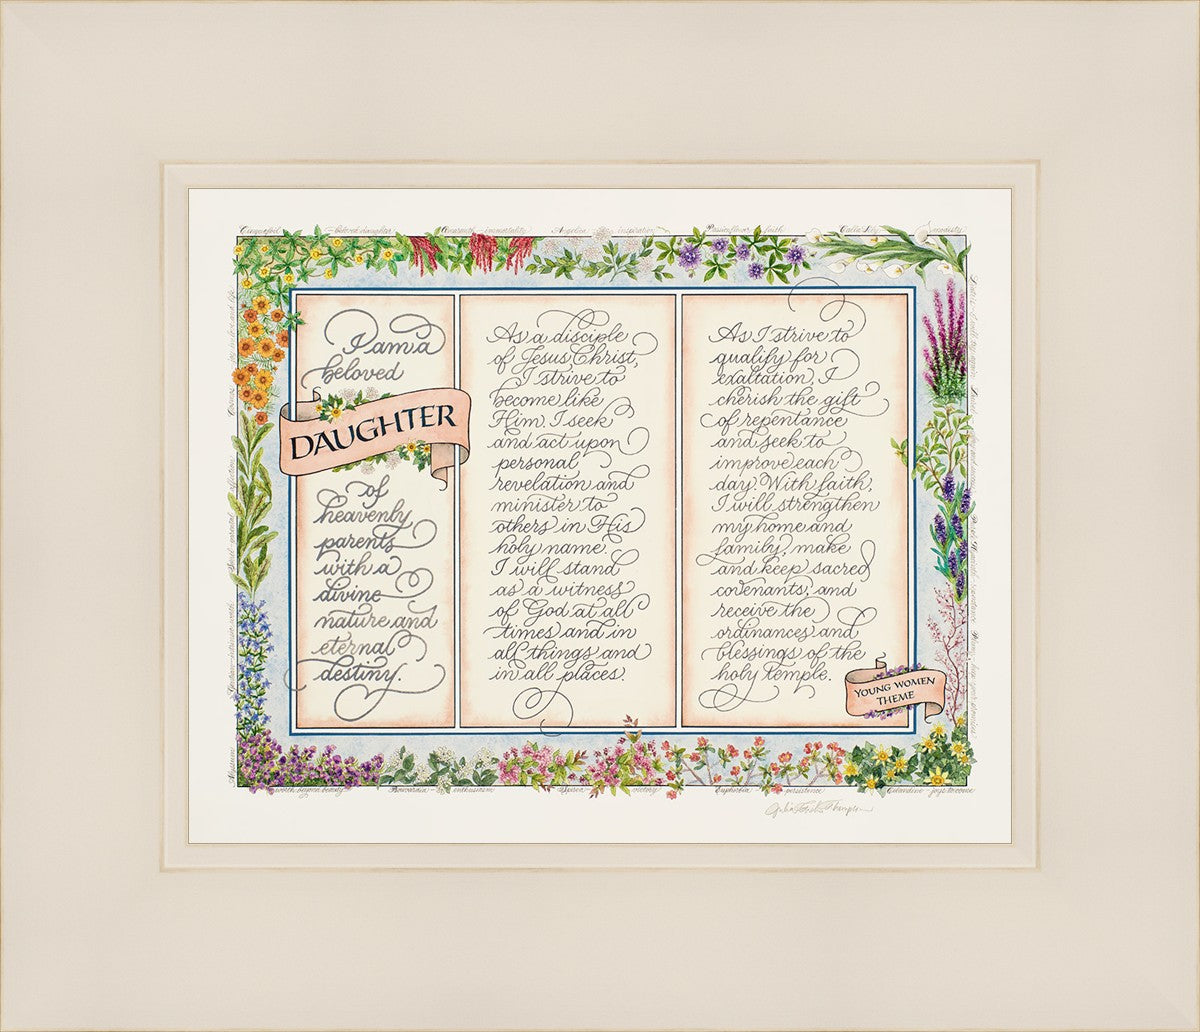 Cinquefoil – beloved daughter
Amaranth – immortality
Angelica – inspiration
Passionflower – faith
Calla Lily – modesty
I am a
beloved
DAUGHTER
of
heavenly
parents
with a
divine
nature and
eternal
destiny.
As a disciple
of Jesus Christ,
I strive to
become like
Him. I seek
and act upon
personal
revelation and
minister to
others in His
holy name.
I will stand
as a witness
of God at all
times and in
all things and
in all places.
As I strive to
qualify for
exaltation, I
cherish the gift
of repentance
and seek to
improve each
day. With faith,
I will strengthen
my home and
family, make
and keep sacred
covenants, and
receive the
ordinances and
blessings of the
holy temple.
YOUNG WOMEN
THEME
worth beyond beauty
Bouvardia – enthusiasm
victory
Euphorbia – persistence
Celandine – joys to come